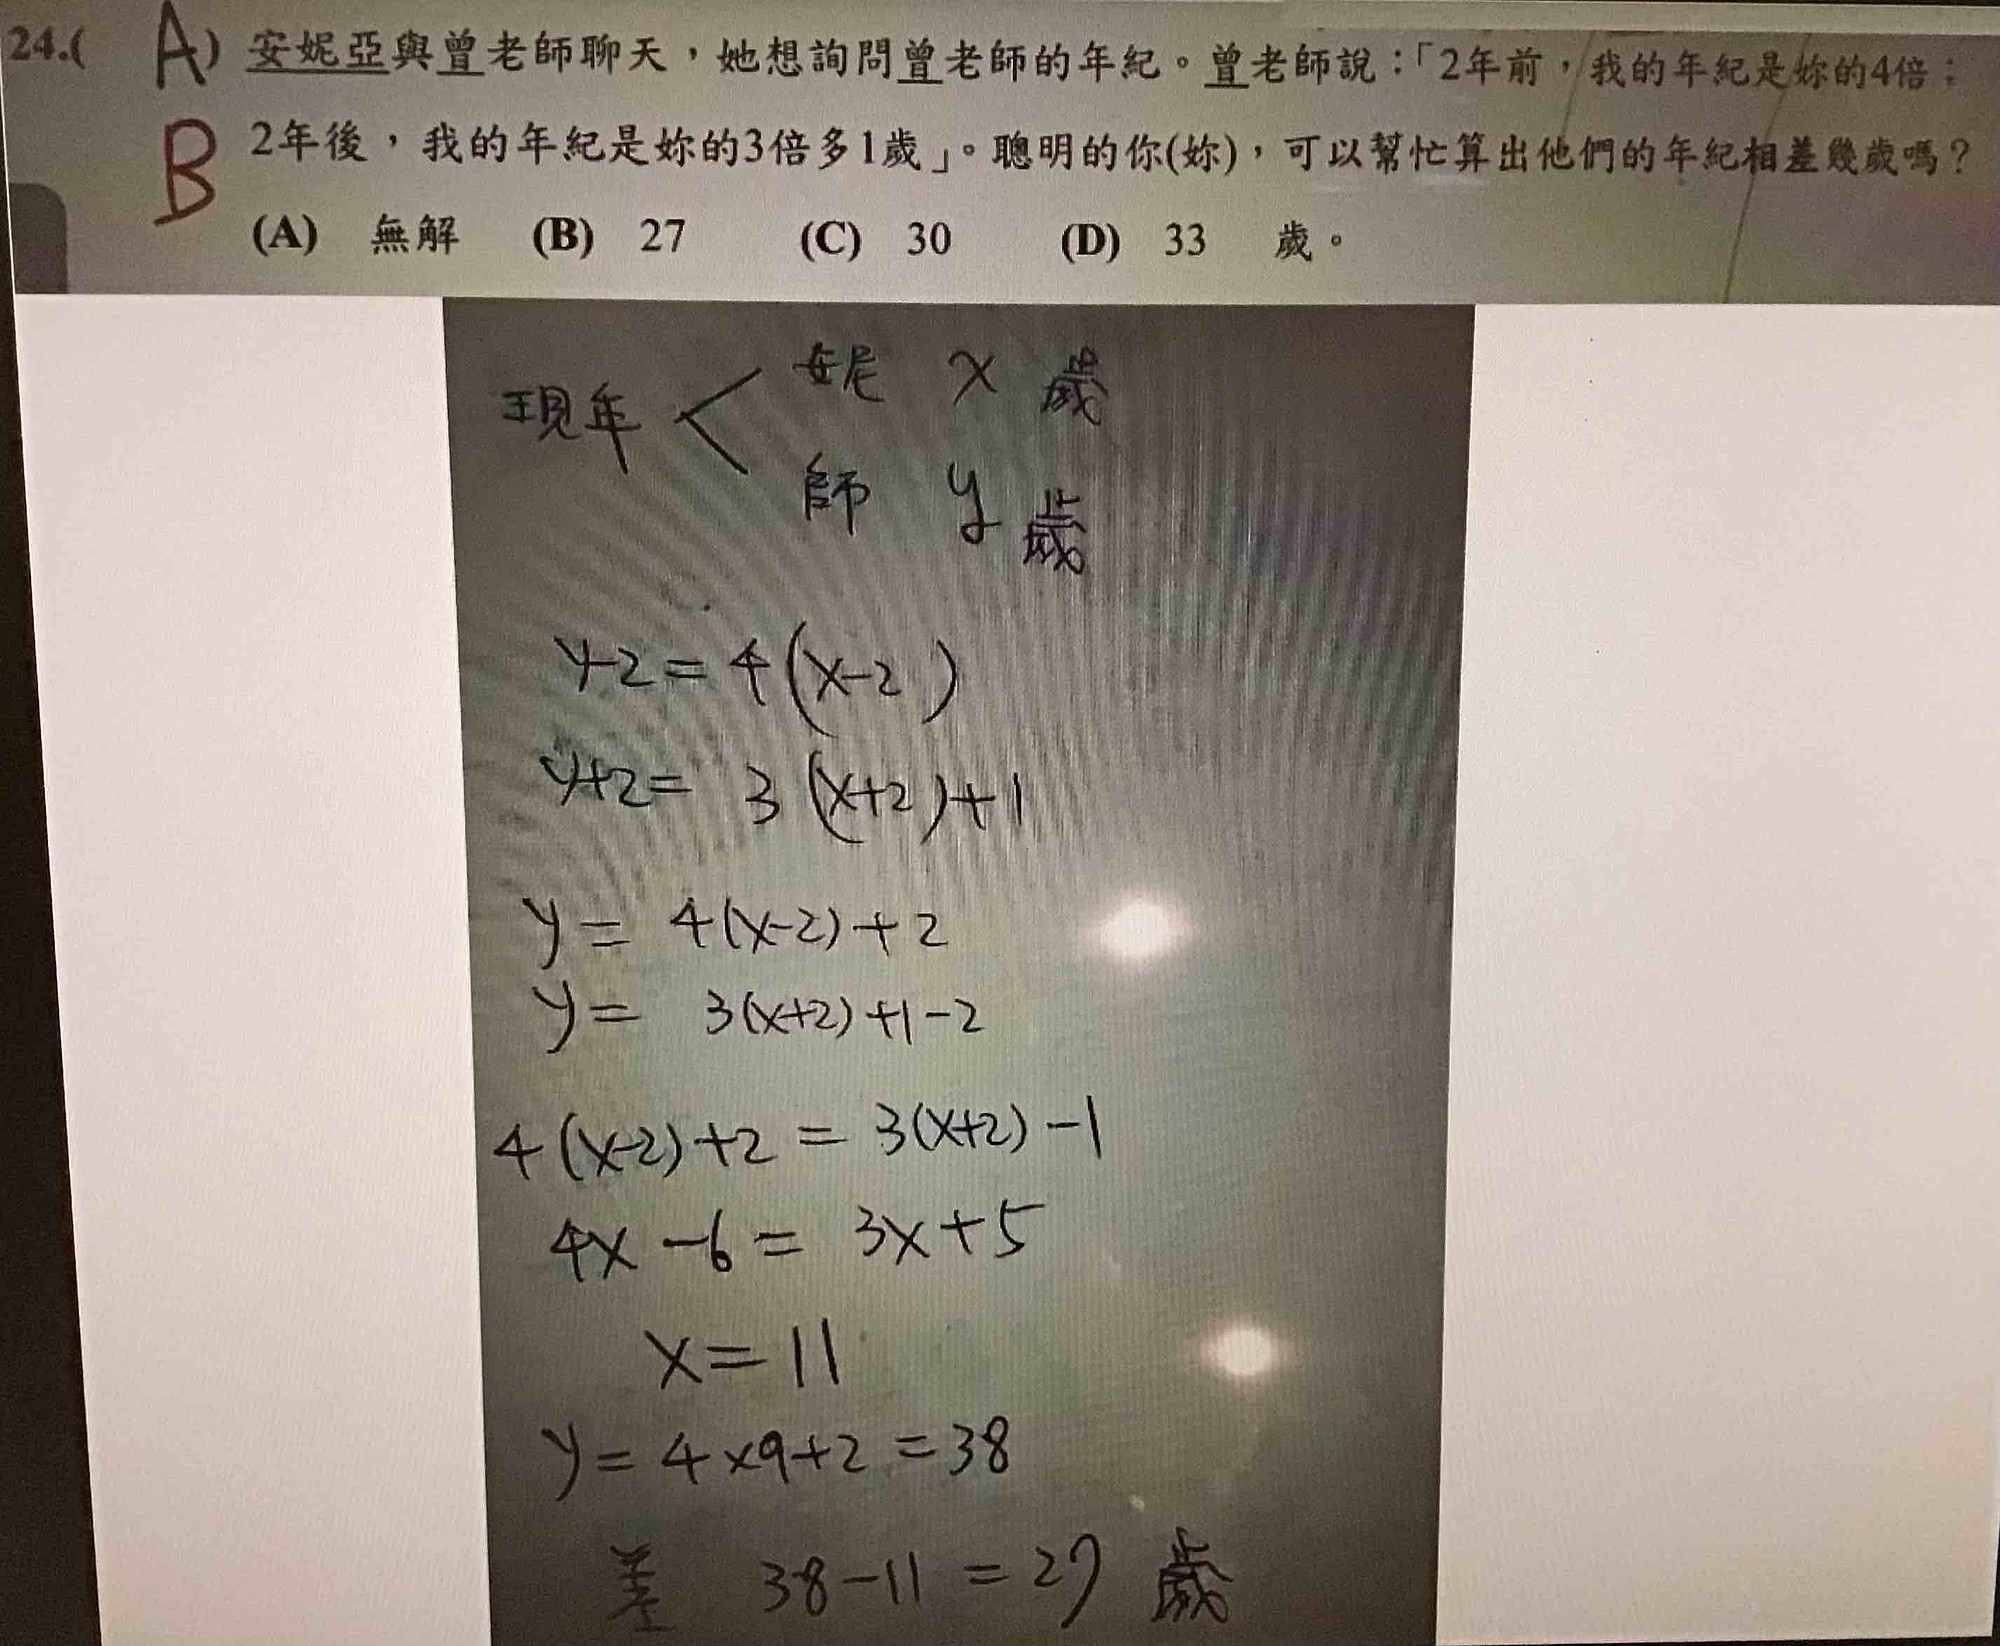 24.( A ) 安妮亞與曾老師聊天，她想詢問曾老師的年紀。曾老師說：「2年前，我的年紀是妳的4倍；
B 2年後，我的年紀是妳的3倍多1歲」。聰明的你(妳)，可以幫忙算出他們的年紀相差幾歲嗎？
(A) 無解 (B) 27 (C) 30 (D) 33 歲。
現年 < 妮 x 歲
師 y 歲
y-2 = 4(x-2)
y+2 = 3(x+2)+1
y = 4(x-2)+2
y = 3(x+2)+1-2
4(x-2)+2 = 3(x+2)-1
4x-6 = 3x+5
x = 11
y = 4×9+2 = 38
差 38-11 = 27 歲